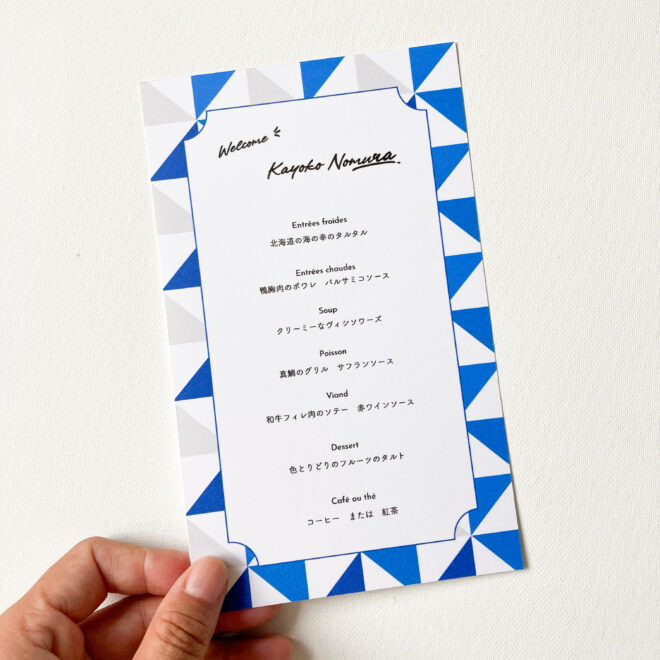 Welcome
Kayoko Nomura.
Entrées froides
北海道の海の幸のタルタル
Entrées chaudes
鴨胸肉のポワレ バルサミコソース
Soup
クリーミーなヴィシソワーズ
Poisson
真鯛のグリル サフランソース
Viand
和牛フィレ肉のソテー 赤ワインソース
Dessert
色とりどりのフルーツのタルト
Café ou thé
コーヒー または 紅茶